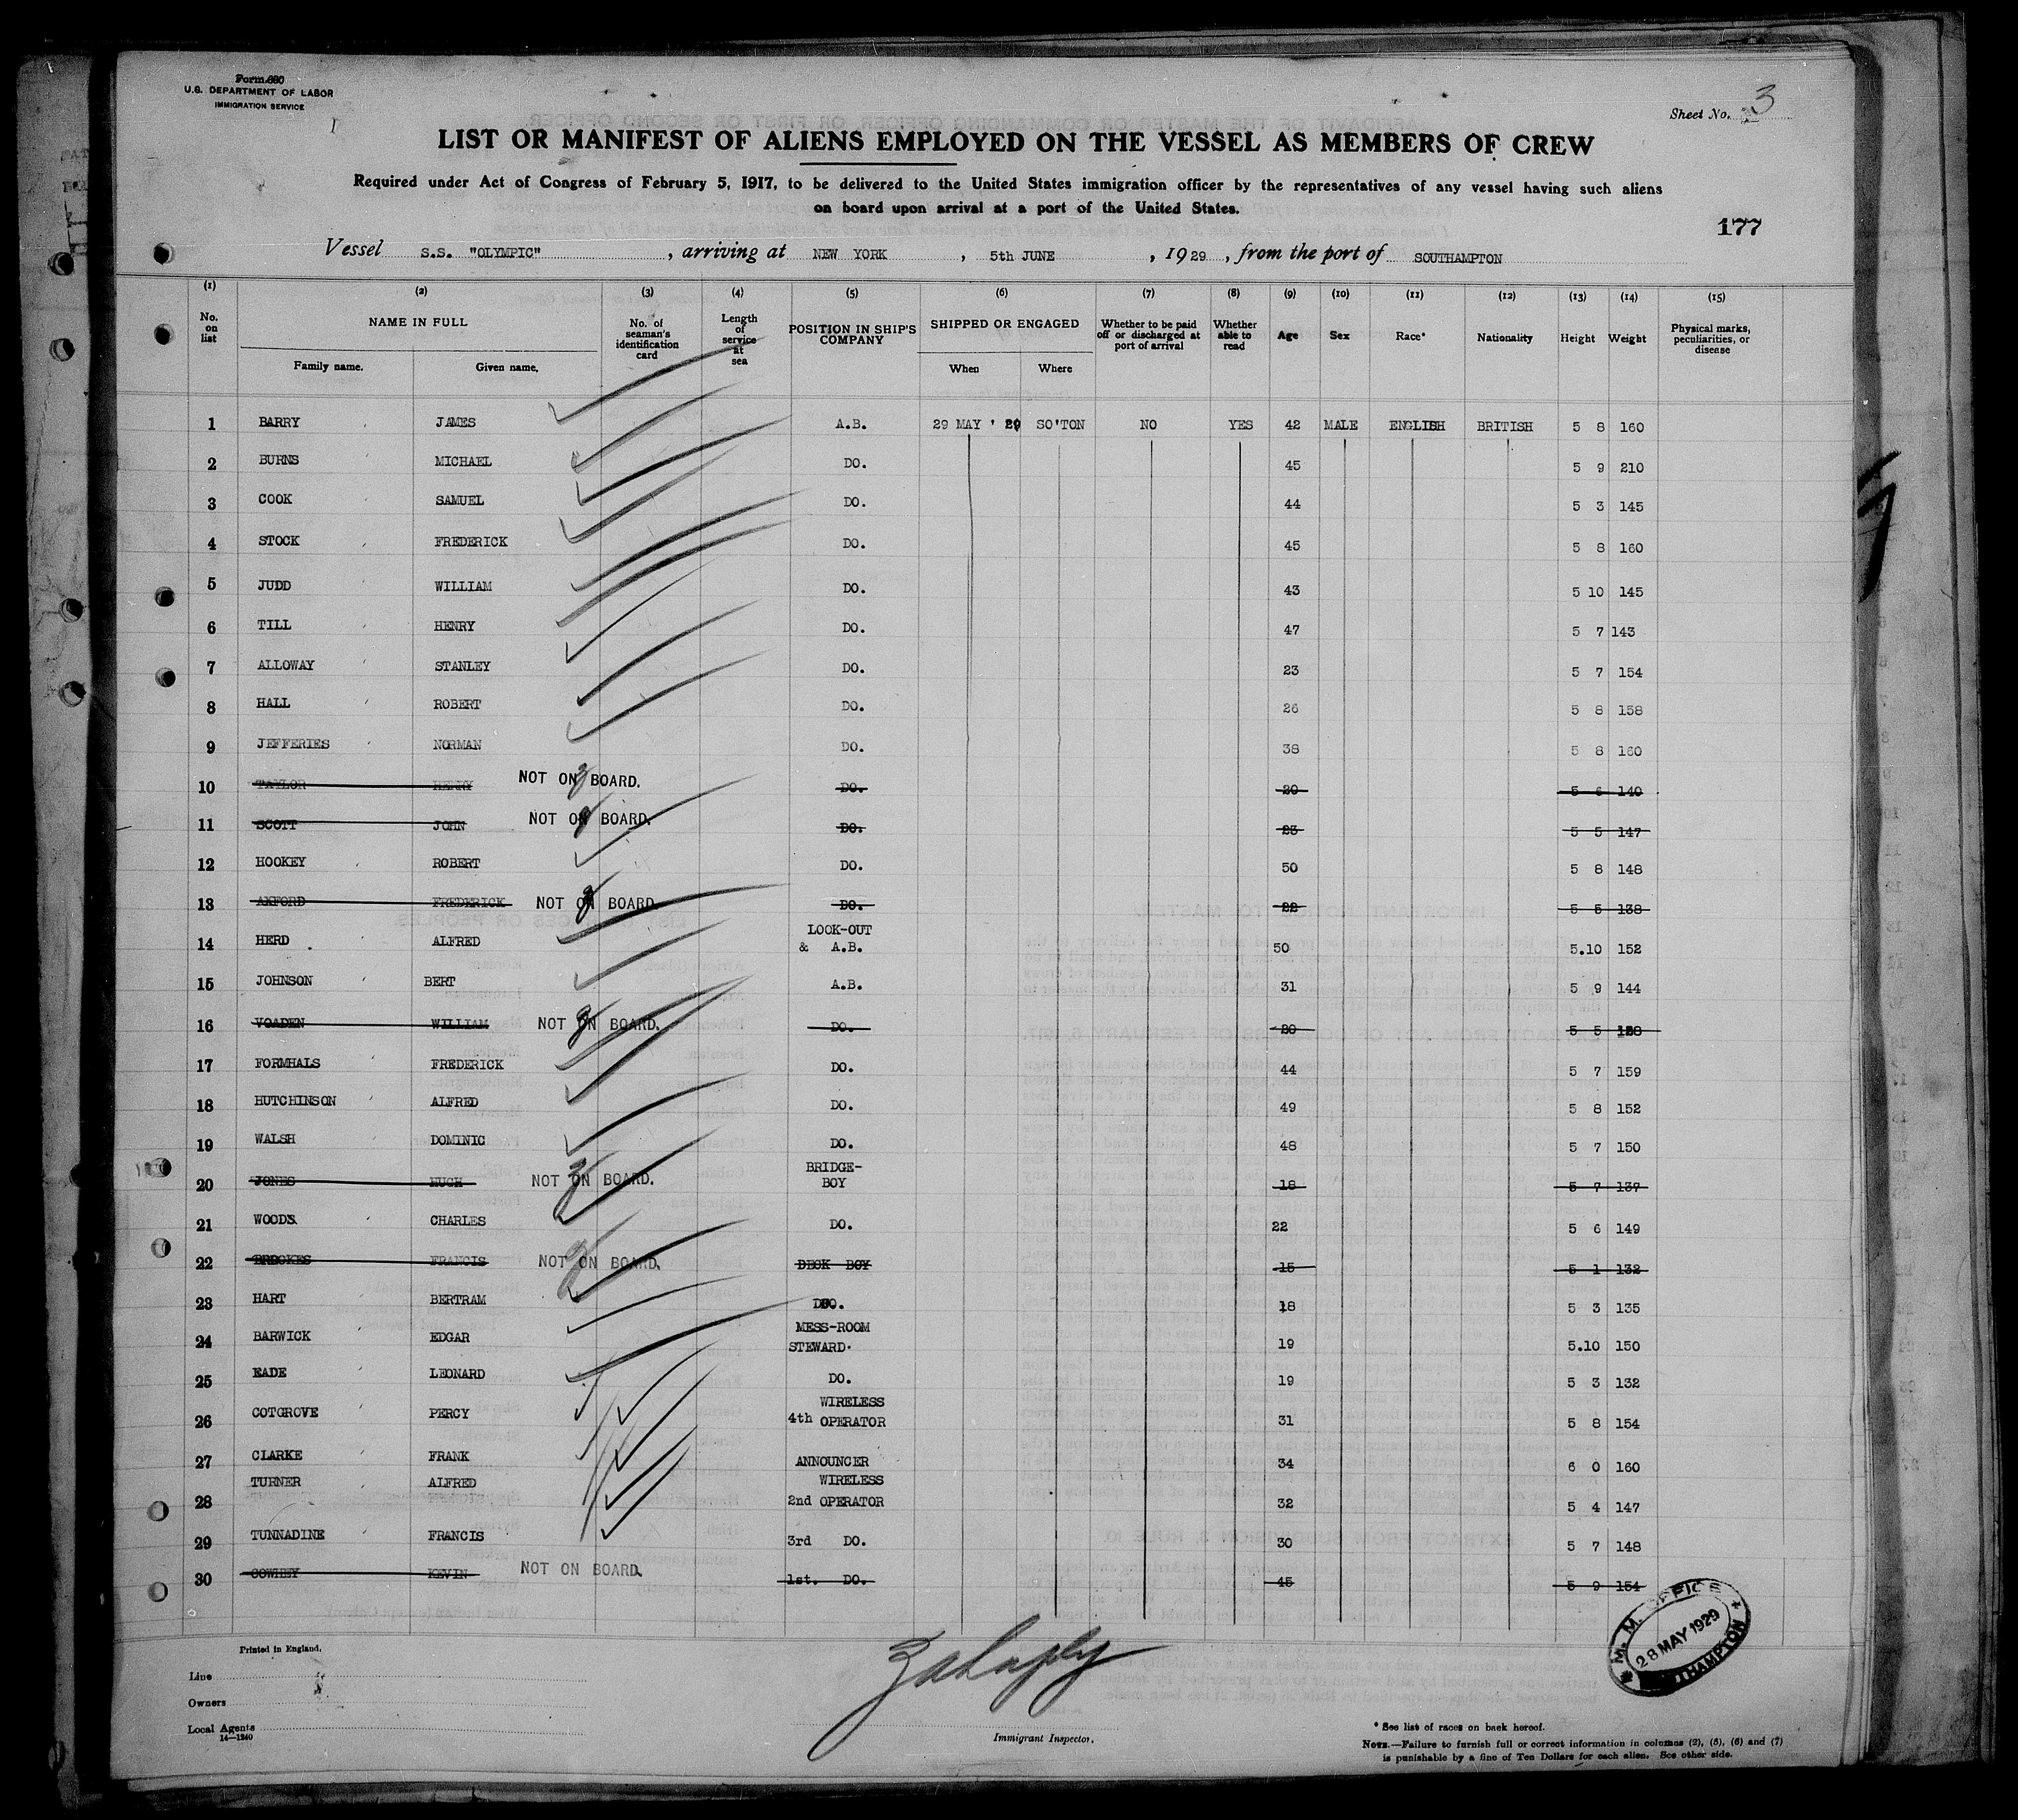 Form 680
U.S. DEPARTMENT OF LABOR
IMMIGRATION SERVICE
Sheet No. 3
LIST OR MANIFEST OF ALIENS EMPLOYED ON THE VESSEL AS MEMBERS OF CREW
Required under Act of Congress of February 5, 1917, to be delivered to the United States immigration officer by the representatives of any vessel having such aliens
on board upon arrival at a port of the United States.
177
Vessel S.S. "OLYMPIC", arriving at NEW YORK, 5th JUNE, 1929, from the port of SOUTHAMPTON
(1) (2) (3) (4) (5) (6) (7) (8) (9) (10) (11) (12) (13) (14) (15)
No. on list NAME IN FULL Family name. Given name. No. of seaman's identification card Length of service at sea POSITION IN SHIP'S COMPANY SHIPPED OR ENGAGED When Where Whether to be paid off or discharged at port of arrival Whether able to read Age Sex Race* Nationality Height Weight Physical marks, peculiarities, or disease
1 BARRY JAMES A.B. 29 MAY ' 29 SO'TON NO YES 42 MALE ENGLISH BRITISH 5 8 160
2 BURNS MICHAEL DO. 45 5 9 210
3 COOK SAMUEL DO. 44 5 3 145
4 STOCK FREDERICK DO. 45 5 8 160
5 JUDD WILLIAM DO. 43 5 10 145
6 TILL HENRY DO. 47 5 7 143
7 ALLOWAY STANLEY DO. 23 5 7 154
8 HALL ROBERT DO. 26 5 8 158
9 JEFFERIES NORMAN DO. 38 5 8 160
10 TAYLOR HENRY NOT ON BOARD. DO. 20 5 6 140
11 SCOTT JOHN NOT ON BOARD. DO. 23 5 5 147
12 HOOKEY ROBERT DO. 50 5 8 148
13 AXFORD FREDERICK NOT ON BOARD. DO. 22 5 5 138
14 HERD ALFRED LOOK-OUT & A.B. 50 5.10 152
15 JOHNSON BERT A.B. 31 5 9 144
16 VOADEN WILLIAM NOT ON BOARD. DO. 20 5 5
17 FORMHALS FREDERICK DO. 44 5 7 159
18 HUTCHINSON ALFRED DO. 49 5 8 152
19 WALSH DOMINIC DO. 48 5 7 150
20 JONES HUGH NOT ON BOARD. BRIDGE-BOY 18 5 7 137
21 WOODS CHARLES DO. 22 5 6 149
22 FRANCIS NOT ON BOARD. DECK BOY 15 5 1 132
23 HART BERTRAM DO. 18 5 3 135
24 BARWICK EDGAR MESS-ROOM STEWARD. 19 5.10 150
25 EADE LEONARD DO. 19 5 3 132
26 COTGROVE PERCY 4th WIRELESS OPERATOR 31 5 8 154
27 CLARKE FRANK ANNOUNCER 34 6 0 160
28 TURNER ALFRED 2nd WIRELESS OPERATOR 32 5 4 147
29 TUNNADINE FRANCIS 3rd DO. 30 5 7 148
30 COWHEY KEVIN NOT ON BOARD. 1st. DO. 45 5 9 154
M. M. OFFICE
28 MAY 1929
THAMPTON
Printed in England.
Line
Owners
Local Agents
14—1240
Immigrant Inspector.
* See list of races on back hereof.
NOTE.—Failure to furnish full or correct information in columns (2), (5), (6) and (7)
is punishable by a fine of Ten Dollars for each alien. See other side.